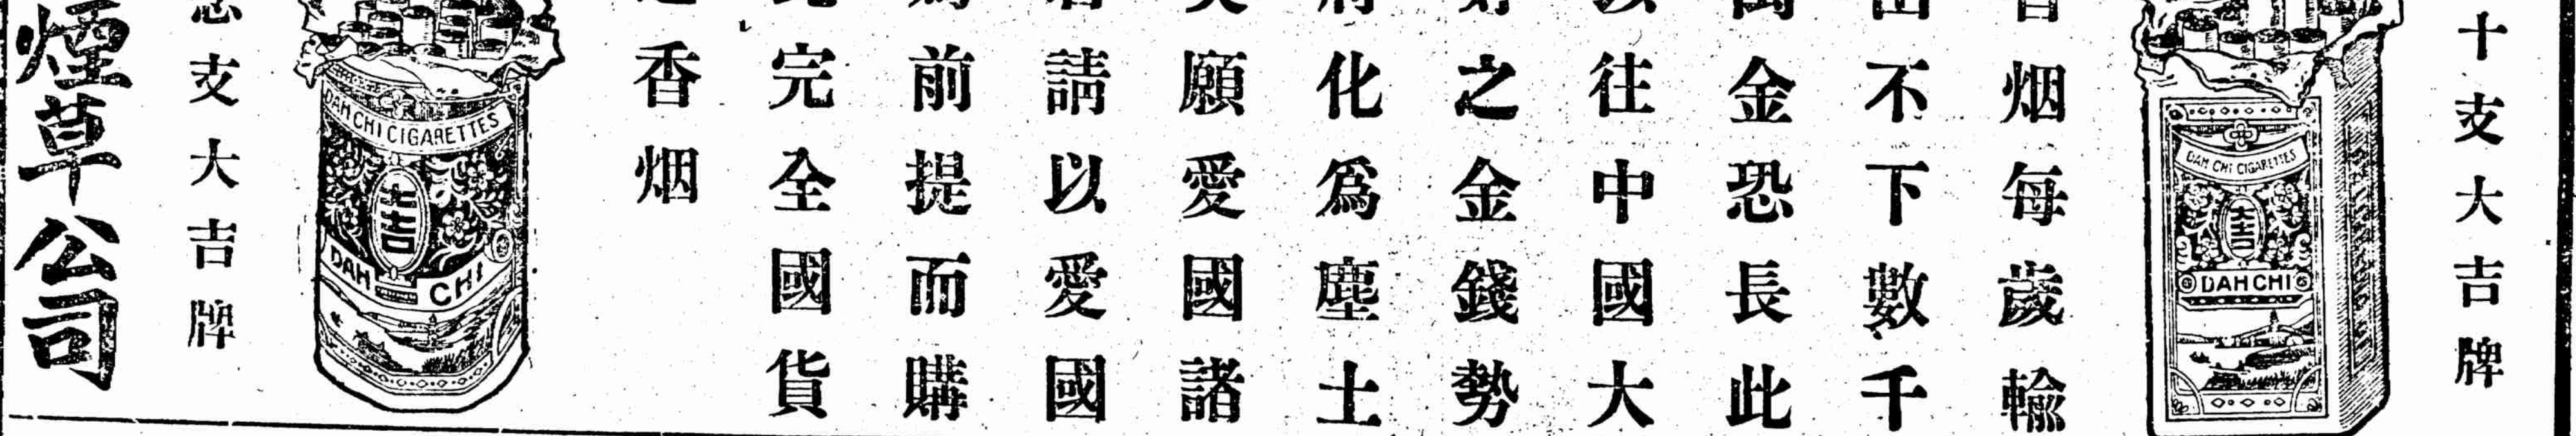 十支大吉牌
DAH CHI CIGARETTES
大吉
DAH CHI
烟每歲輸
不下數千
金恐長此
往中國大
之金錢勢
化爲塵土
願愛國諸
請以愛國
前提而購
完全國貨
香烟
DAH CHI CIGARETTES
大吉
DAH CHI
支大吉牌
煙草公司